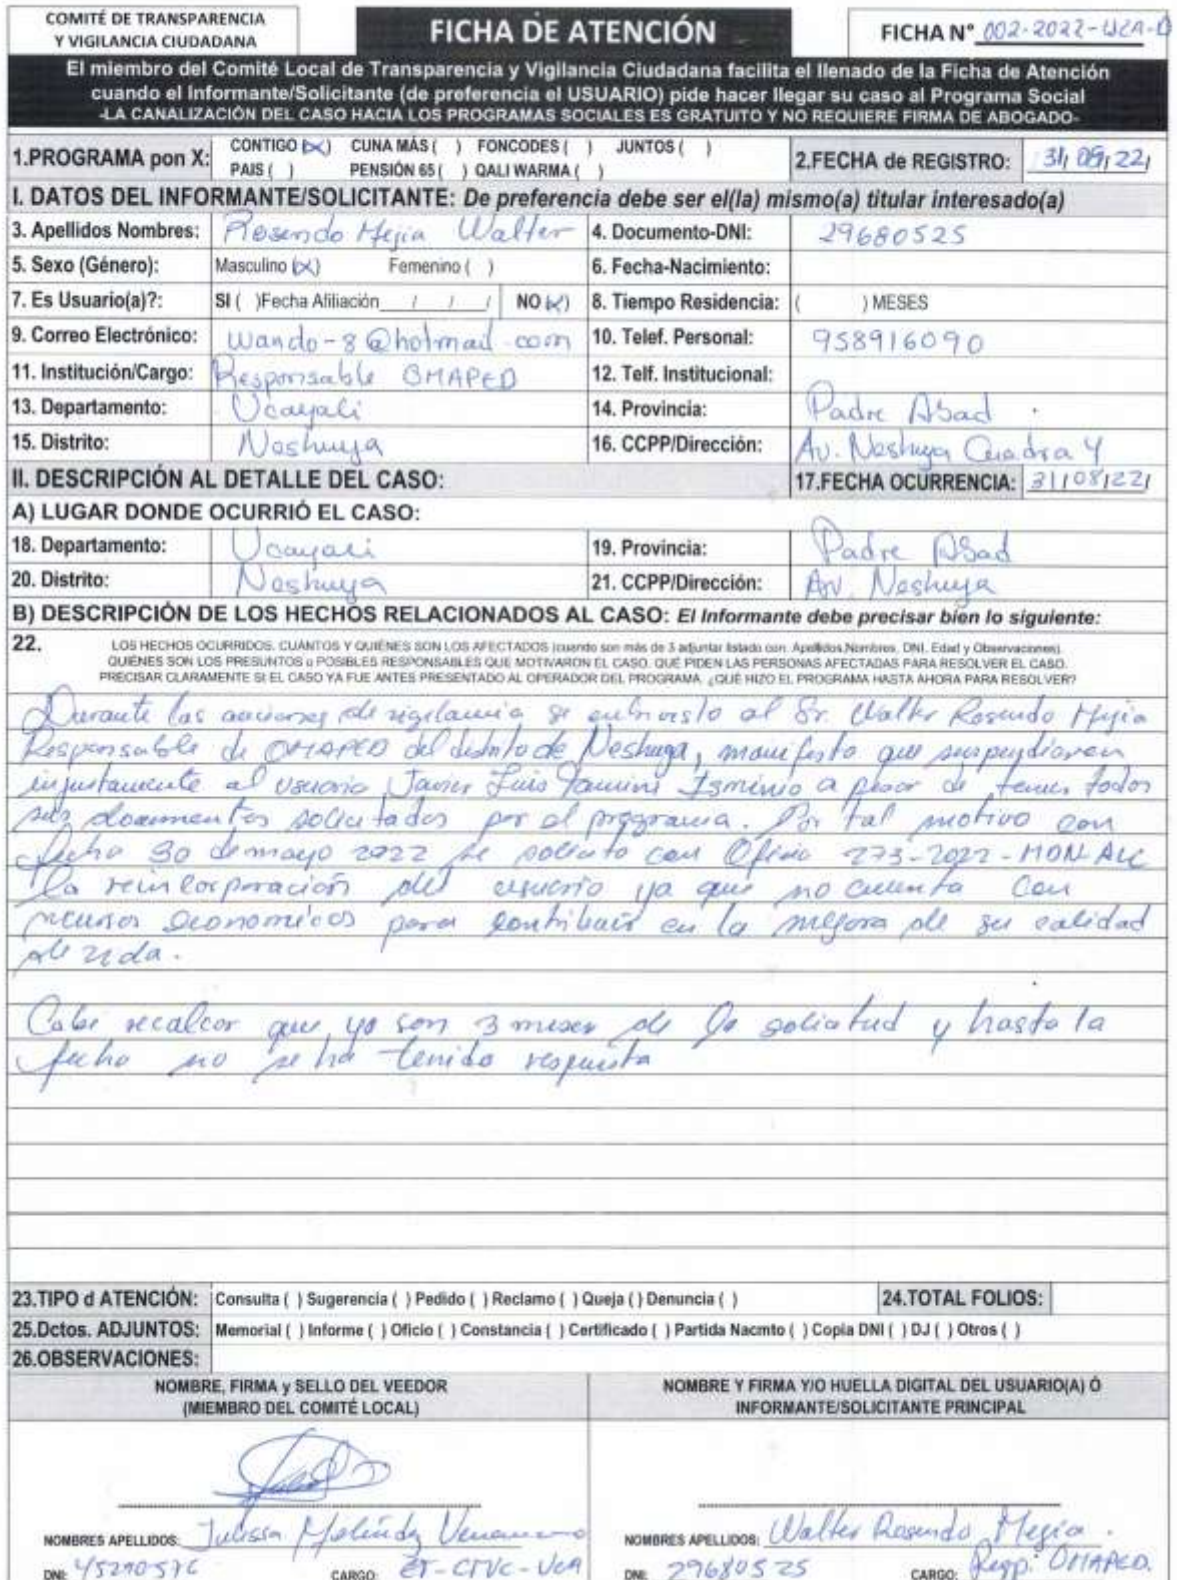 COMITÉ DE TRANSPARENCIA
Y VIGILANCIA CIUDADANA
FICHA DE ATENCIÓN
FICHA N° 002-2022-UCA-D
El miembro del Comité Local de Transparencia y Vigilancia Ciudadana facilita el llenado de la Ficha de Atención
cuando el Informante/Solicitante (de preferencia el USUARIO) pide hacer llegar su caso al Programa Social
-LA CANALIZACIÓN DEL CASO HACIA LOS PROGRAMAS SOCIALES ES GRATUITO Y NO REQUIERE FIRMA DE ABOGADO-
1.PROGRAMA pon X: CONTIGO (X) CUNA MÁS ( ) FONCODES ( ) JUNTOS ( )
PAIS ( ) PENSIÓN 65 ( ) QALI WARMA ( )
2.FECHA de REGISTRO: 31/08/22/
I. DATOS DEL INFORMANTE/SOLICITANTE: De preferencia debe ser el(la) mismo(a) titular interesado(a)
3. Apellidos Nombres: Rosendo Mejia Walter 4. Documento-DNI: 29680525
5. Sexo (Género): Masculino (X) Femenino ( ) 6. Fecha-Nacimiento:
7. Es Usuario(a)?: SI ( )Fecha Afiliación / / / NO (X) 8. Tiempo Residencia: ( ) MESES
9. Correo Electrónico: wando-8@hotmail.com 10. Telef. Personal: 958916090
11. Institución/Cargo: Responsable OMAPED 12. Telf. Institucional:
13. Departamento: Ucayali 14. Provincia: Padre Abad
15. Distrito: Neshuya 16. CCPP/Dirección: Av. Neshuya Cuadra 4
II. DESCRIPCIÓN AL DETALLE DEL CASO: 17.FECHA OCURRENCIA: 31/08/22/
A) LUGAR DONDE OCURRIÓ EL CASO:
18. Departamento: Ucayali 19. Provincia: Padre Abad
20. Distrito: Neshuya 21. CCPP/Dirección: Av. Neshuya
B) DESCRIPCIÓN DE LOS HECHOS RELACIONADOS AL CASO: El Informante debe precisar bien lo siguiente:
22. LOS HECHOS OCURRIDOS, CUÁNTOS Y QUIÉNES SON LOS AFECTADOS (cuando son más de 3 adjuntar listado con: Apellidos,Nombres, DNI, Edad y Observaciones).
QUIENES SON LOS PRESUNTOS o POSIBLES RESPONSABLES QUE MOTIVARON EL CASO. QUÉ PIDEN LAS PERSONAS AFECTADAS PARA RESOLVER EL CASO.
PRECISAR CLARAMENTE SI EL CASO YA FUE ANTES PRESENTADO AL OPERADOR DEL PROGRAMA. ¿QUÉ HIZO EL PROGRAMA HASTA AHORA PARA RESOLVER?
Durante las acciones de vigilancia se entrevisto al Sr. Walter Rosendo Mejia
Responsable de OMAPED del distrito de Neshuya, manifesto que suspendieron
injustamente al usuario Javier Luis Isminio a pesar de tener todos
sus documentos solicitados por el programa. Por tal motivo con
fecha 30 de mayo 2022 se solicito con Oficio 273-2022-MDN-ALC
la reincorporación del usuario ya que no cuenta con
recursos economicos para contribuir en la mejora de su calidad
de vida.
Cabe recalcar que ya son 3 meses de la solicitud y hasta la
fecha no se ha tenido respuesta
23.TIPO d ATENCIÓN: Consulta ( ) Sugerencia ( ) Pedido ( ) Reclamo ( ) Queja ( ) Denuncia ( ) 24.TOTAL FOLIOS:
25.Dctos. ADJUNTOS: Memorial ( ) Informe ( ) Oficio ( ) Constancia ( ) Certificado ( ) Partida Nacmto ( ) Copia DNI ( ) DJ ( ) Otros ( )
26.OBSERVACIONES:
NOMBRE, FIRMA y SELLO DEL VEEDOR
(MIEMBRO DEL COMITÉ LOCAL)
NOMBRE Y FIRMA Y/O HUELLA DIGITAL DEL USUARIO(A) Ó
INFORMANTE/SOLICITANTE PRINCIPAL
NOMBRES APELLIDOS: Julissa
DNI: 45290576 CARGO: ET-CTVC-UCA
NOMBRES APELLIDOS: Walter Rosendo Megia.
DNI: 29680525 CARGO: Resp. OMAPED.